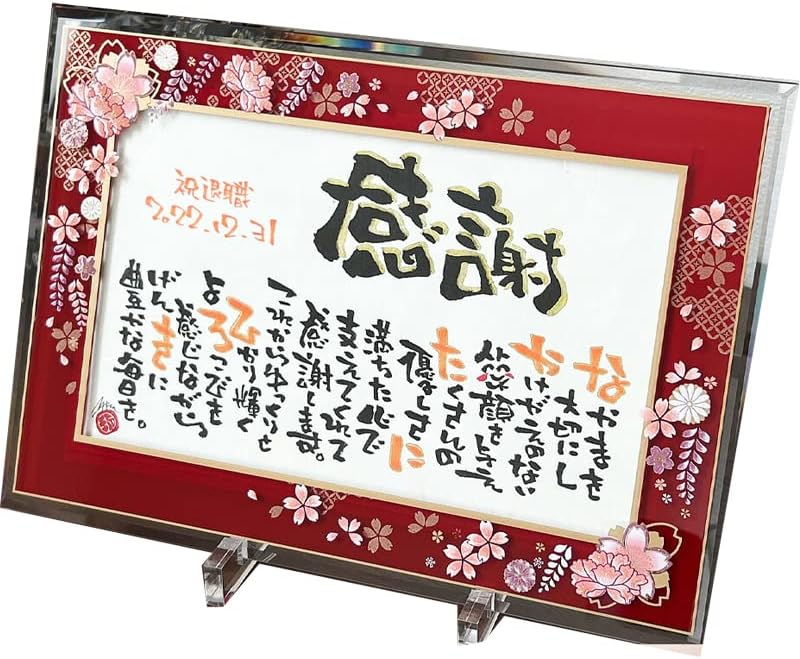 感謝
祝退職
2022.12.31
なかまを
大切にし
かけがえのない
笑顔をささえ
たくさんの
優しさに
満ちた心で
支えてくれて
感謝します。
これからゆっくりと
ひかり輝く
よろこびを
感じながら
げんきに
豊かな毎日を。